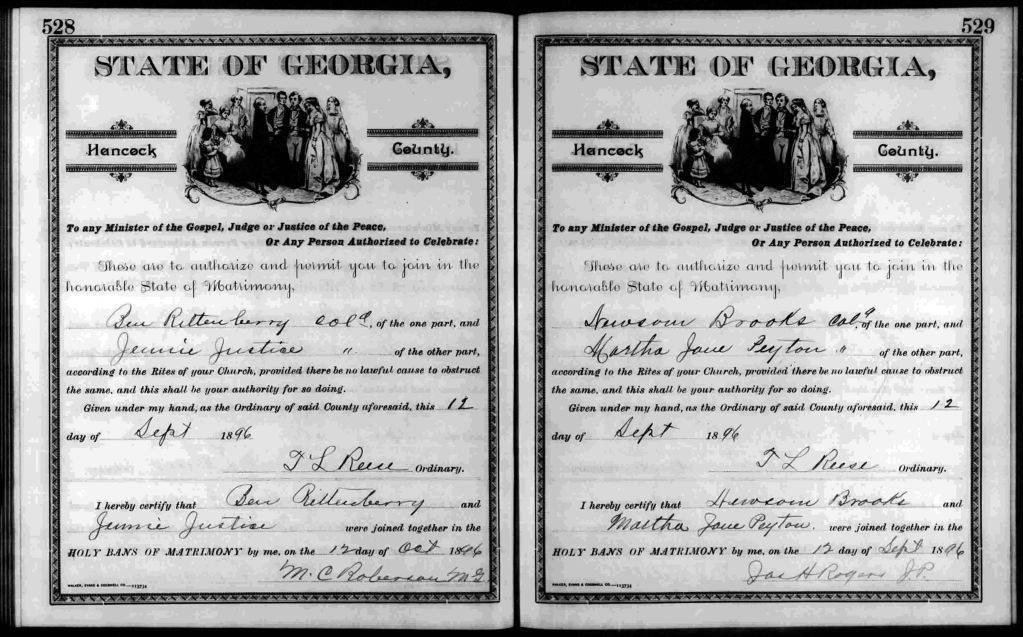 528
STATE OF GEORGIA,
Hancock County.
To any Minister of the Gospel, Judge or Justice of the Peace,
Or Any Person Authorized to Celebrate:
These are to authorize and permit you to join in the
honorable State of Matrimony,
Ben Rittenberry Cold, of the one part, and
Jennie Justice " of the other part,
according to the Rites of your Church, provided there be no lawful cause to obstruct
the same, and this shall be your authority for so doing.
Given under my hand, as the Ordinary of said County aforesaid, this 12
day of Sept 1896
T L Reese Ordinary.
I hereby certify that Ben Rittenberry and
Jennie Justice were joined together in the
HOLY BANS OF MATRIMONY by me, on the 12 day of Oct 1896
M. C Roberson M G
WALKER, EVANS & COGSWELL CO.—113734
529
STATE OF GEORGIA,
Hancock County.
To any Minister of the Gospel, Judge or Justice of the Peace,
Or Any Person Authorized to Celebrate:
These are to authorize and permit you to join in the
honorable State of Matrimony,
Newsom Brooks Cold, of the one part, and
Martha Jane Peyton " of the other part,
according to the Rites of your Church, provided there be no lawful cause to obstruct
the same, and this shall be your authority for so doing.
Given under my hand, as the Ordinary of said County aforesaid, this 12
day of Sept 1896
T L Reese Ordinary.
I hereby certify that Newsom Brooks and
Martha Jane Peyton. were joined together in the
HOLY BANS OF MATRIMONY by me, on the 12 day of Sept 1896
Jas H Rogers J.P.
WALKER, EVANS & COGSWELL CO.—113734